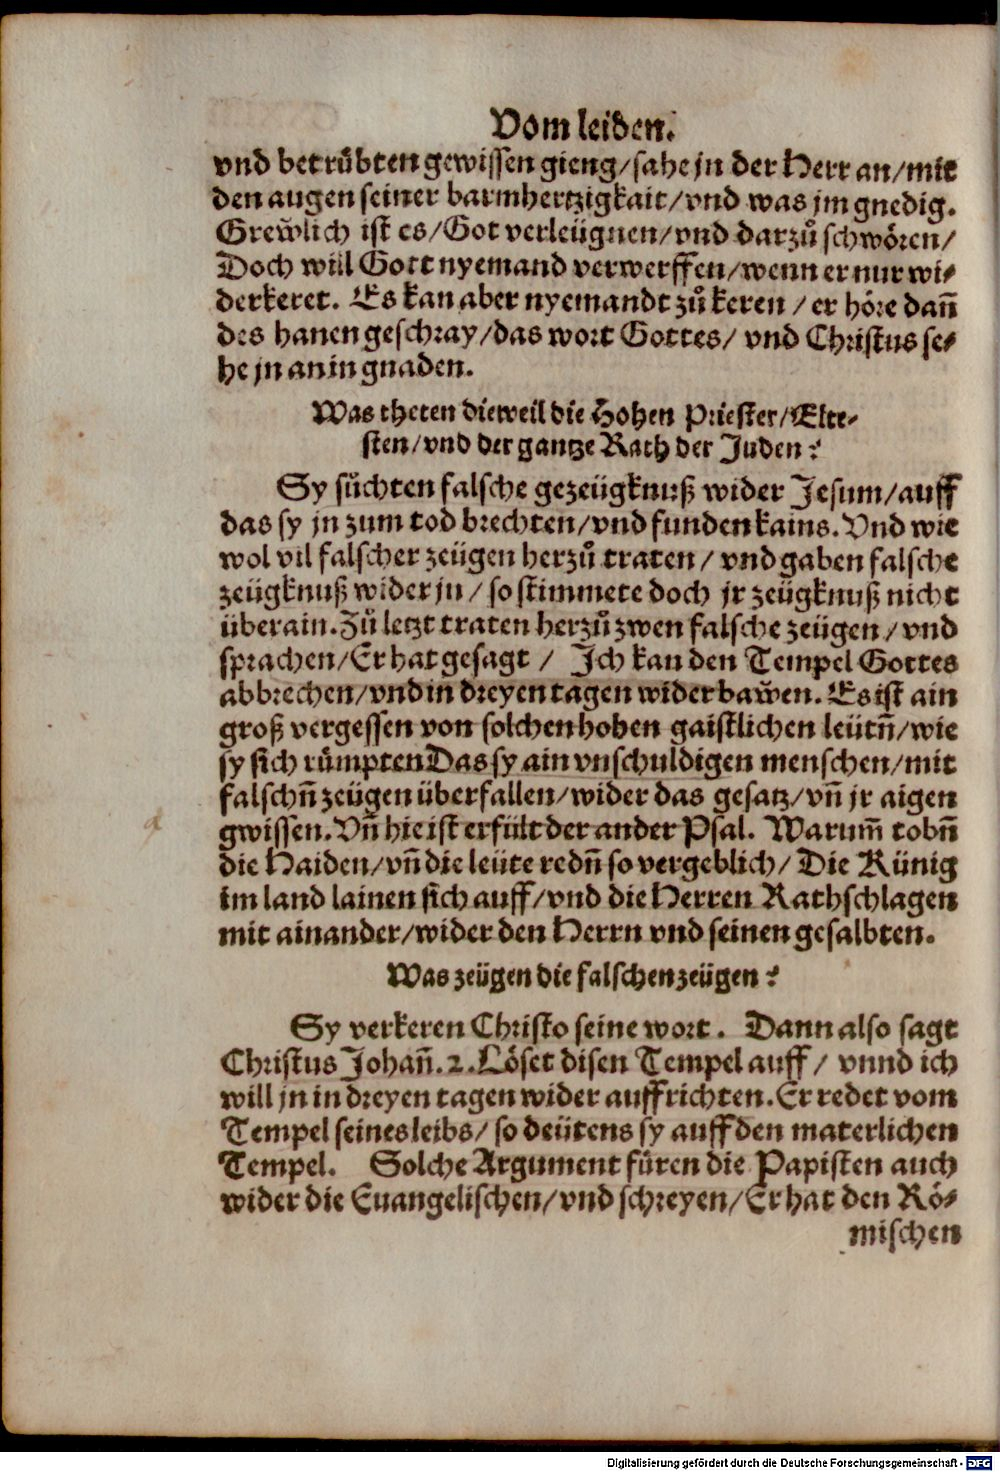 Vom leiden.
vnd betruͤbten gewissen gieng/sahe jn der Herr an/mit
den augen seiner barmhertzigkait/vnd was jm gnedig.
Grew̃lich ist es/Got verleügnen/vnd darzuͦ schwoͤren/
Doch will Gott nyemand verwerffen/wenn er nur wi⸗
derkeret. Es kan aber nyemandt zuͦ keren / er hoͤre dañ
des hanen geschray/das wort Gottes/ vnd Christus se⸗
he jn an in gnaden.
Was theten dieweil die Hohen Priester/Elte⸗
sten/vnd der gantze Rath der Juden?
Sy suͤchten falsche gezeügknuß wider Jesum/auff
das sy jn zum tod brechten/vnd funden kains. Vnd wie
wol vil falscher zeügen herzuͦ traten / vnd gaben falsche
zeügknuß wider jn / so stimmete doch jr zeügknuß nicht
überain. Zuͦ letzt traten herzuͦ zwen falsche zeügen / vnd
sprachen/Er hat gesagt / Ich kan den Tempel Gottes
abbrechen/vnd in dreyen tagen wider baw̃en. Es ist ain
groß vergessen von solchen hohen gaistlichen leütñ/wie
sy sich ruͤmpten Das sy ain vnschuldigen menschen/mit
falschñ zeügen überfallen/wider das gesatz/vñ jr aigen
gwissen. Vñ hie ist erfült der ander Psal. Warum̃ tobñ
die Haiden/vñ die leüte redñ so vergeblich/ Die Künig
im land lainen sich auff/vnd die Herren Rathschlagen
mit ainander/wider den Herrn vnd seinen gesalbten.
Was zeügen die falschen zeügen?
Sy verkeren Christo seine wort. Dann also sagt
Christus Johañ. 2. Loͤset disen Tempel auff / vnnd ich
will jn in dreyen tagen wider auffrichten. Er redet vom
Tempel seines leibs/ so deütens sy auff den materlichen
Tempel. Solche Argument fuͤren die Papisten auch
wider die Euangelischen/vnd schreyen/Er hat den Roͤ⸗
mischen
Digitalisierung gefördert durch die Deutsche Forschungsgemeinschaft - DFG